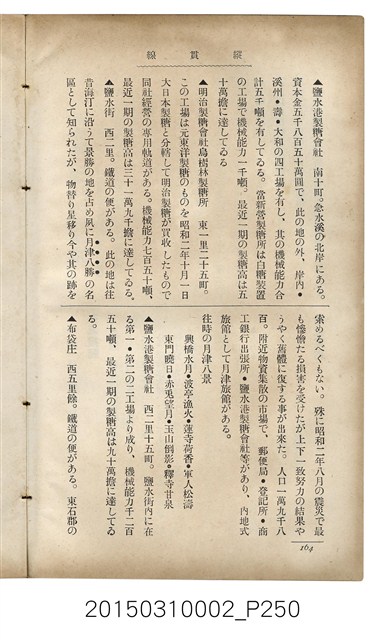 縱貫線
▲鹽水港製糖會社　南十町。急水溪の北岸にある。
資本金五千八百五十萬圓で、此の地の外、岸內・
溪州・壽・大和の四工場を有し、其の機械能力合
計五千噸を有してゐる。當新營製糖所は白糖裝置
の工場で機械能力一千噸。最近一期の製糖高は五
十萬擔に達してゐる
▲明治製糖會社烏樹林製糖所　東一里二十五町。
この工場は元東洋製糖のものを昭和二年十月一日
大日本製糖と分轄して明治製糖が買收したもので
同社經營の專用軌道がある。機械能力七百五十噸、
最近一期の製糖高は三十一萬九千擔に達してゐる。
▲鹽水街　西二里。鐵道の便がある。此の地は往
昔海汀に沿うて景勝の地を占め夙に月津八勝の名
區として知られたが、物替り星移り今や其の跡を
索めるべくもない、殊に昭和二年八月の震災で最
も慘憺たる損害を受けたが上下一致努力の結果や
うやく舊體に復する事が出來た。人口一萬九千八
百。附近物資集散の市場で、郵便局・登記所・商
工銀行出張所・鹽水港製糖會社等があり、內地式
旅館として月津旅館がある。
往時の月津八景
興橋水月・波亭漁火・蓮寺荷香・軍人松濤
東門曉日・赤兎望月・玉山倒影・釋寺甘泉
▲鹽水港製糖會社　西二里十五町。鹽水街內に在
る第一・第二の二工場より成り、機械能力千二百
五十噸、最近一期の製糖高は九十萬擔に達してゐ
る。
▲布袋庄　西五里餘。鐵道の便がある。東石郡の
164
20150310002_P250